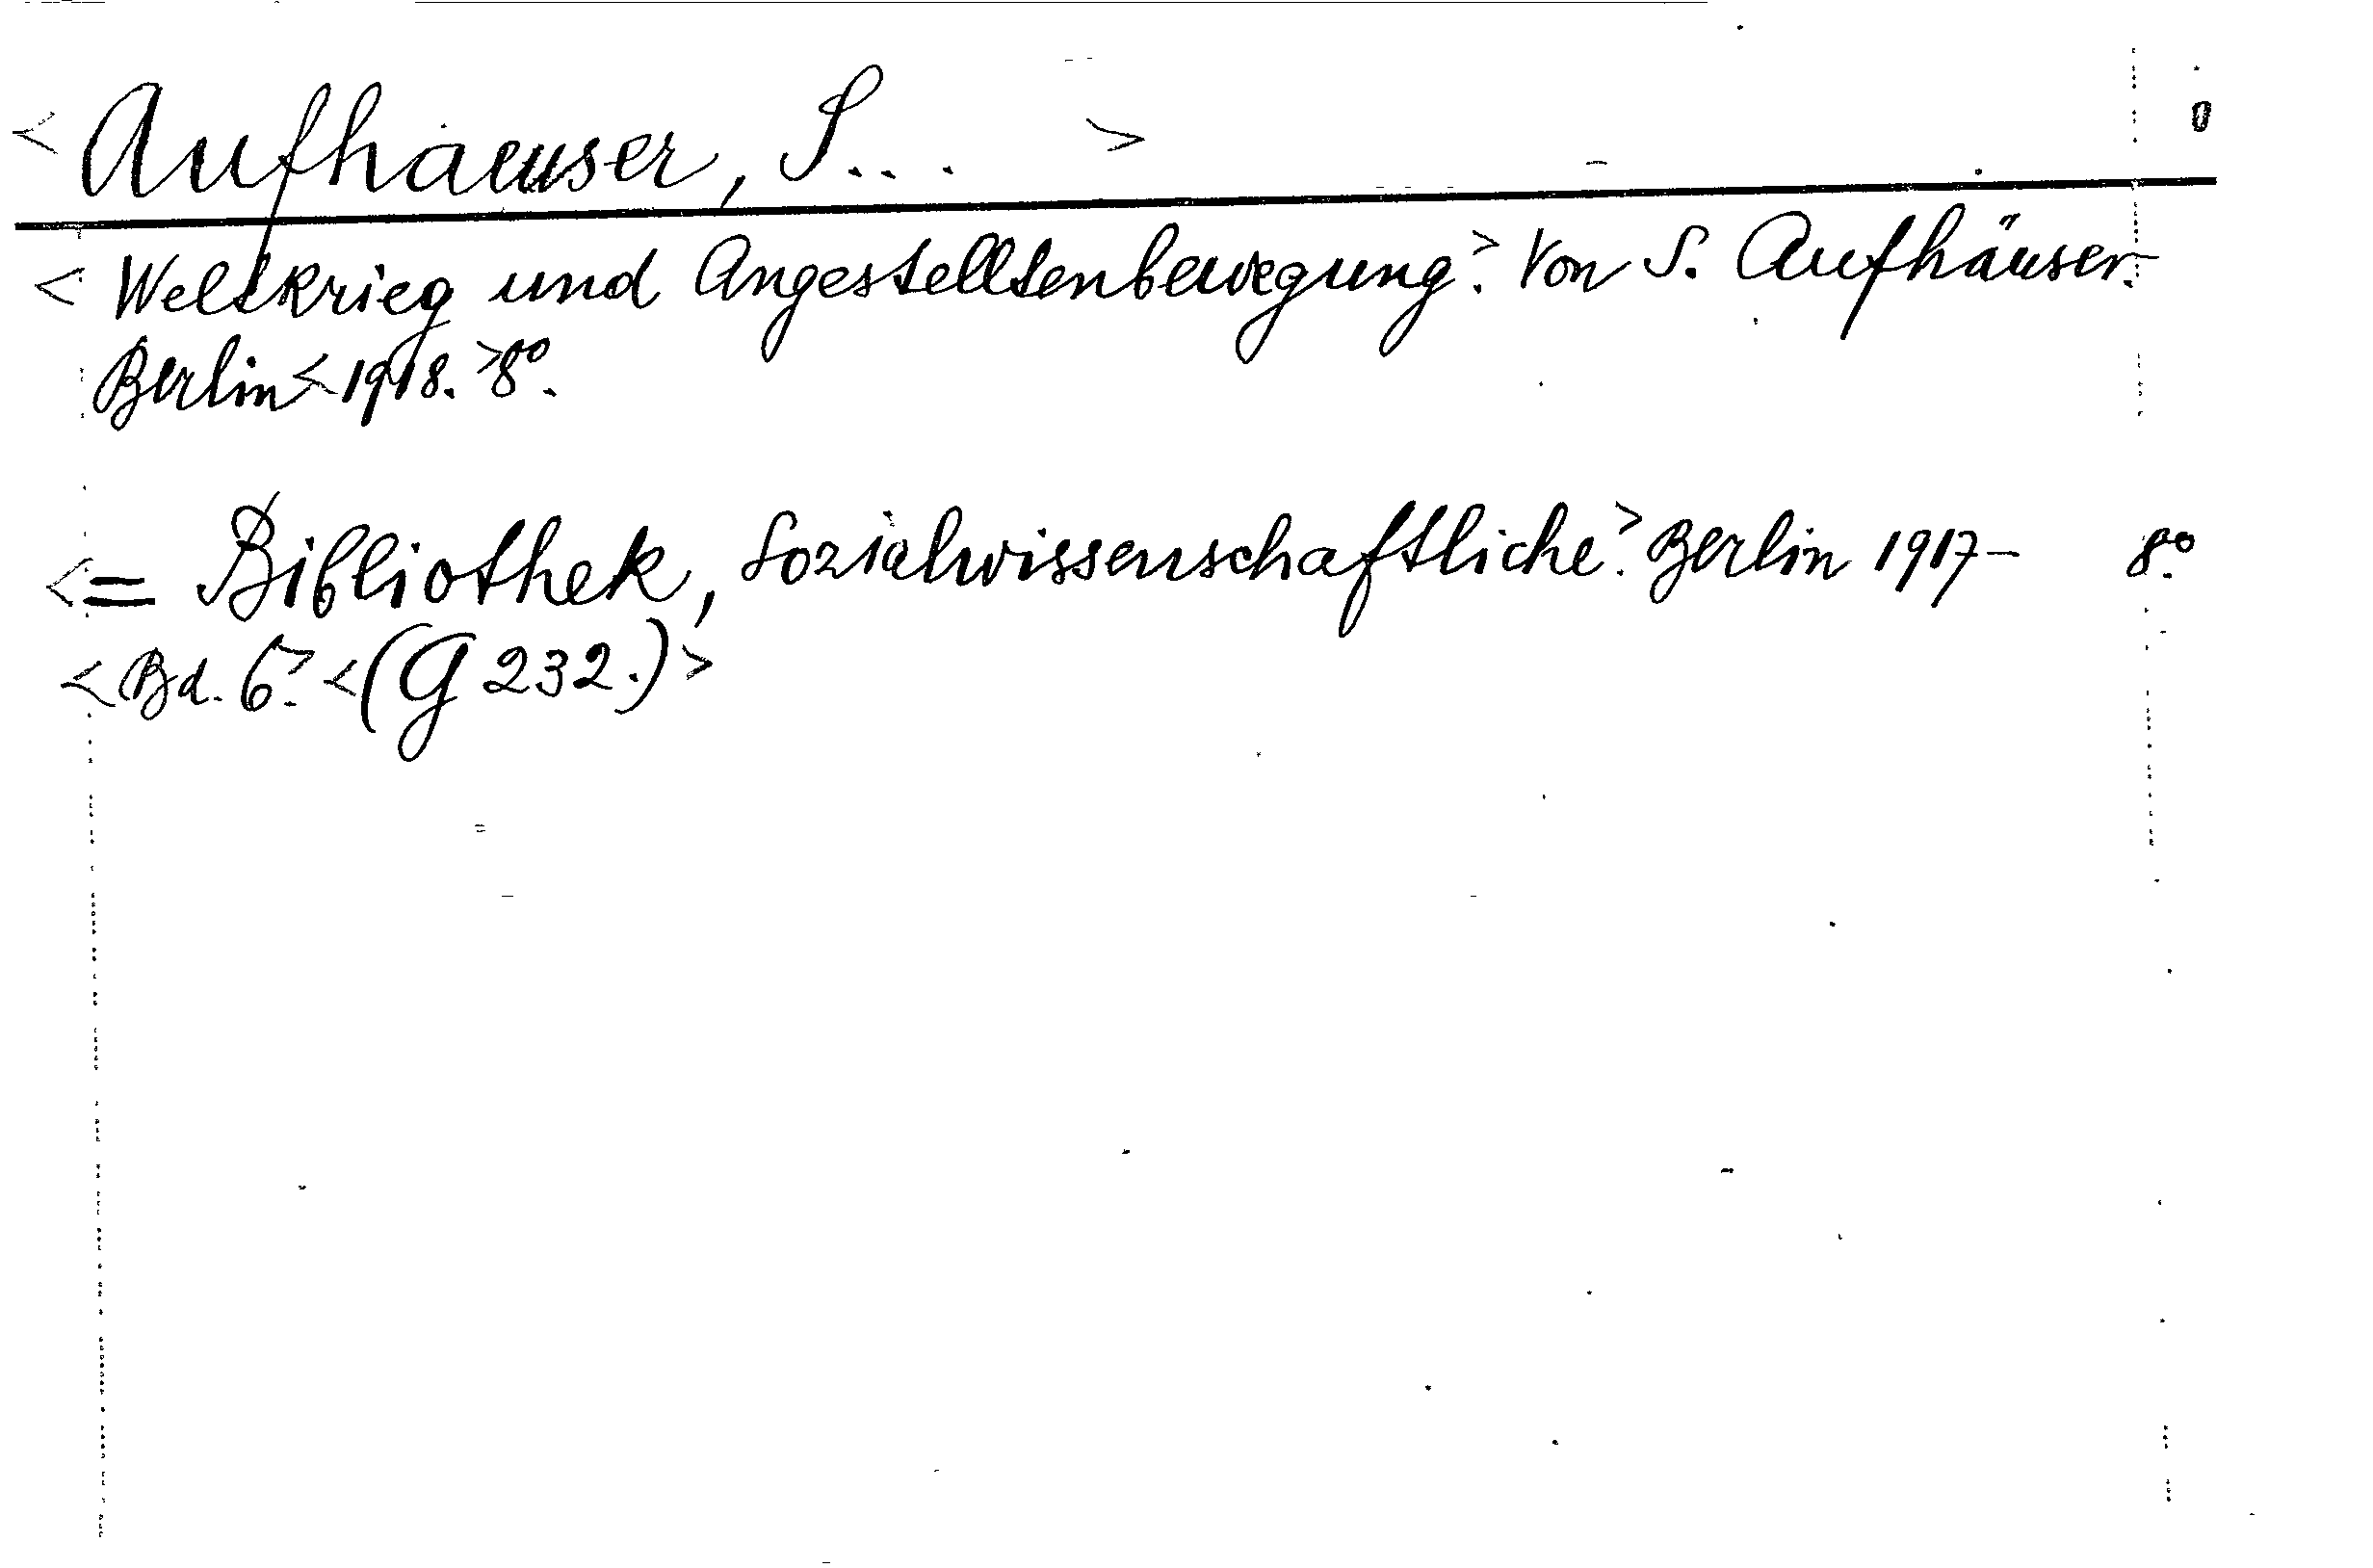 < Aufhäuser, S... >
< Weltkrieg und Angestelltenbewegung.> Von S. Aufhäuser.
Berlin < 1918. > 8°.
<= Bibliothek, Sozialwissenschaftliche.> Berlin 1917– 8°.
< Bd. 6.> <(G 232.)>